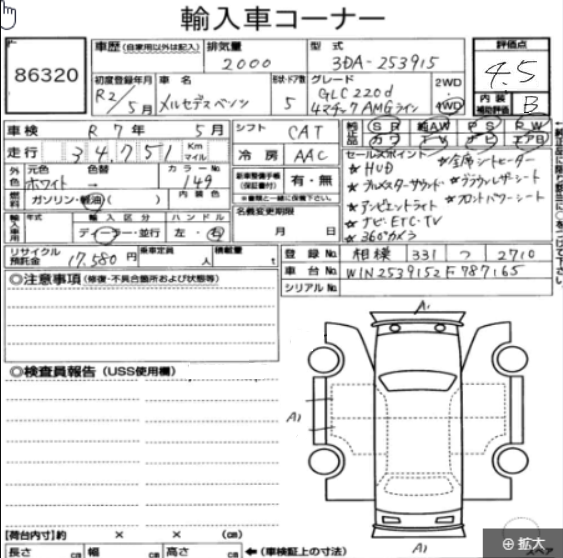 輸入車コーナー
86320
車歴 (自家用以外は記入)
排気量
2000
型式
3DA-253915
評価点
4.5
内装補助評価 B
初度登録年月
R2/5月
車名
メルセデスベンツ
形状・ドア数
5
グレード
GLC 220d
4マチックAMGライン
2WD
4WD
車検 R7年 5月
走行 34,751 Km マイル
シフト CAT
冷房 AAC
純正品 SR 純AW PS PW
カワ TV ナビ エアB
外色 元色 色替 カラーNo.
ホワイト → 149
燃料 ガソリン・軽油( ) 内装色
新車整備手帳(保証書付) 有・無
※書類と一緒に保管下さい。
名義変更期限
月 日
セールスポイント
★HUD
★ブルメスターサウンド
★アンビエントライト
★ナビ・ETC・TV
★360°カメラ
★全席シートヒーター
★ブラウンレザーシート
★フロントパワーシート
輸入車用 年式 輸入区分 ハンドル
ディーラー・並行 左・右
リサイクル預託金 17,580円
乗車定員 人
積載量 t
登録No. 相模 331 つ 2710
車台No. W1N2539152F787165
シリアルNo.
◎注意事項 (修復・不具合箇所および状態等)
◎検査員報告 (USS使用欄)
A1
A1
A1
【荷台内寸】約 × × (cm)
長さ cm 幅 cm 高さ cm ←(車検証上の寸法)
スペア
拡大